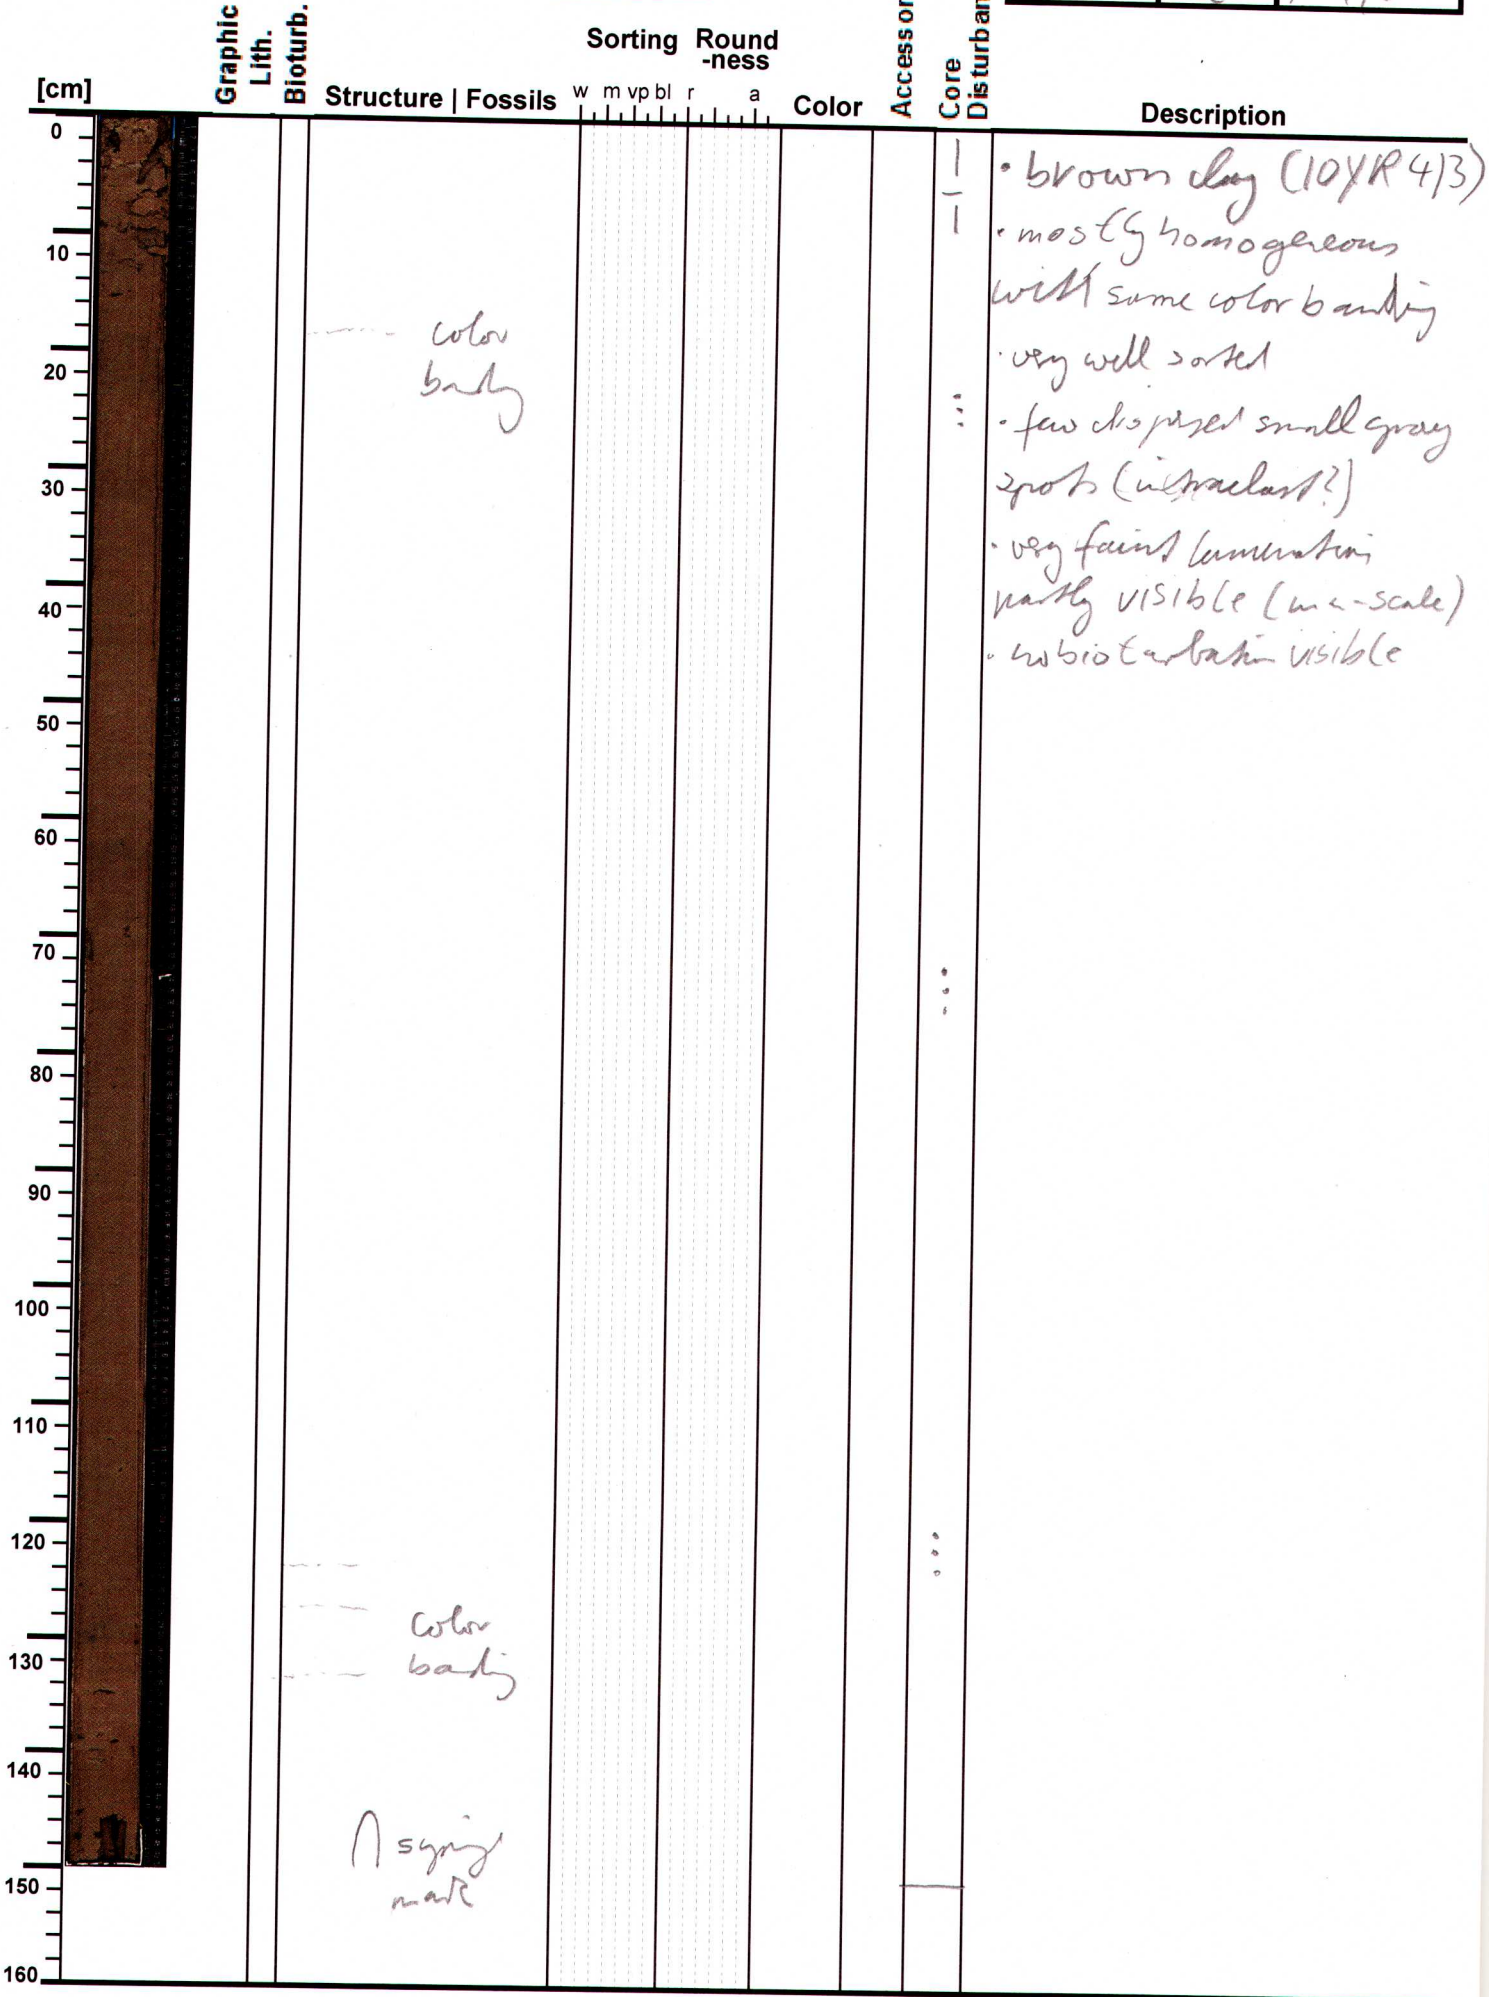 Graphic
Lith.
Bioturb.
Structure | Fossils
Sorting
w m vp bl
Round
-ness
r a
Color
Accessor
Core
Disturban
Description
[cm]
0
10
20
30
40
50
60
70
80
90
100
110
120
130
140
150
160
color
banding
color
banding
syringe
mark
• brown clay (10YR 4/3)
• mostly homogeneous
with some color banding
• very well sorted
• few dispersed small gray
spots (intraclast?)
• very faint lamination
partly visible (mm-scale)
• no bioturbation visible